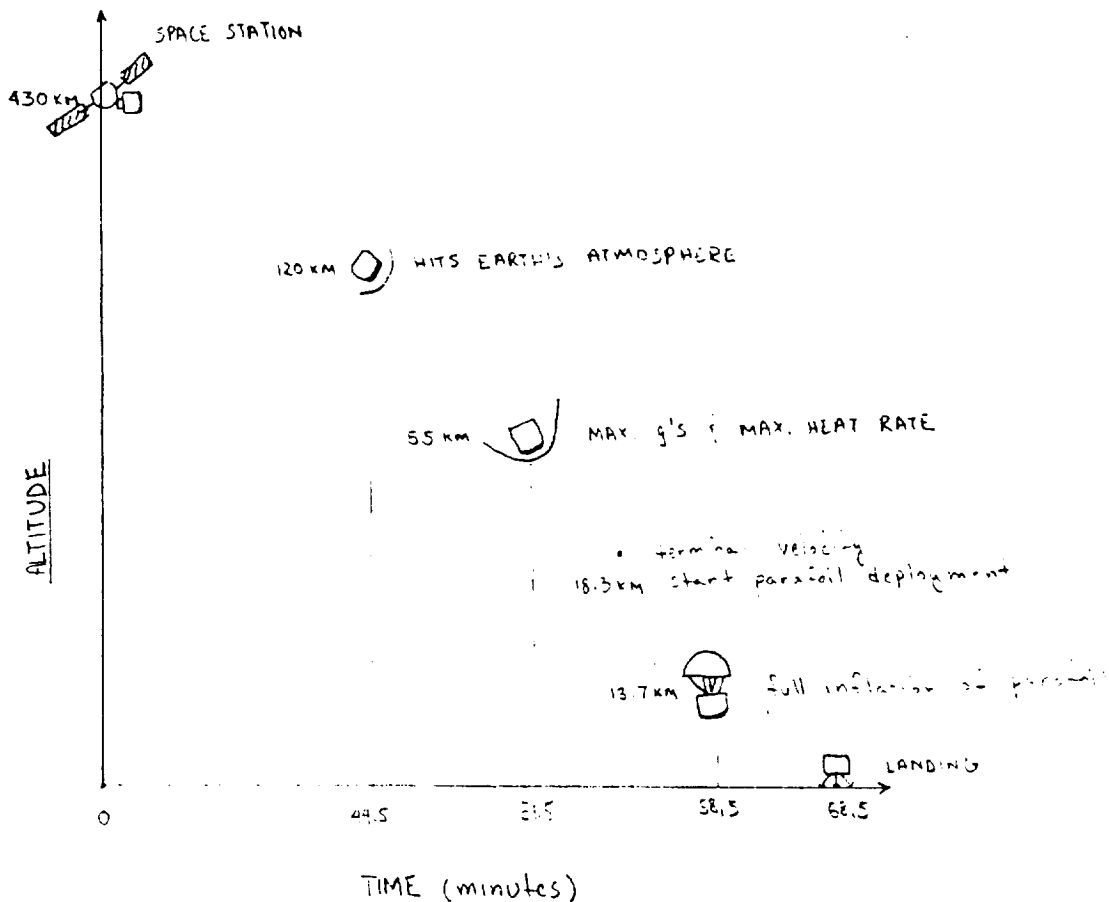 SPACE STATION
430 KM
120 KM HITS EARTH'S ATMOSPHERE
55 KM MAX. g's & MAX. HEAT RATE
ALTITUDE
• terminal velocity
18.3 KM start parafoil deployment
13.7 KM full inflation of
LANDING
0 44.5 58.5 68.5
TIME (minutes)